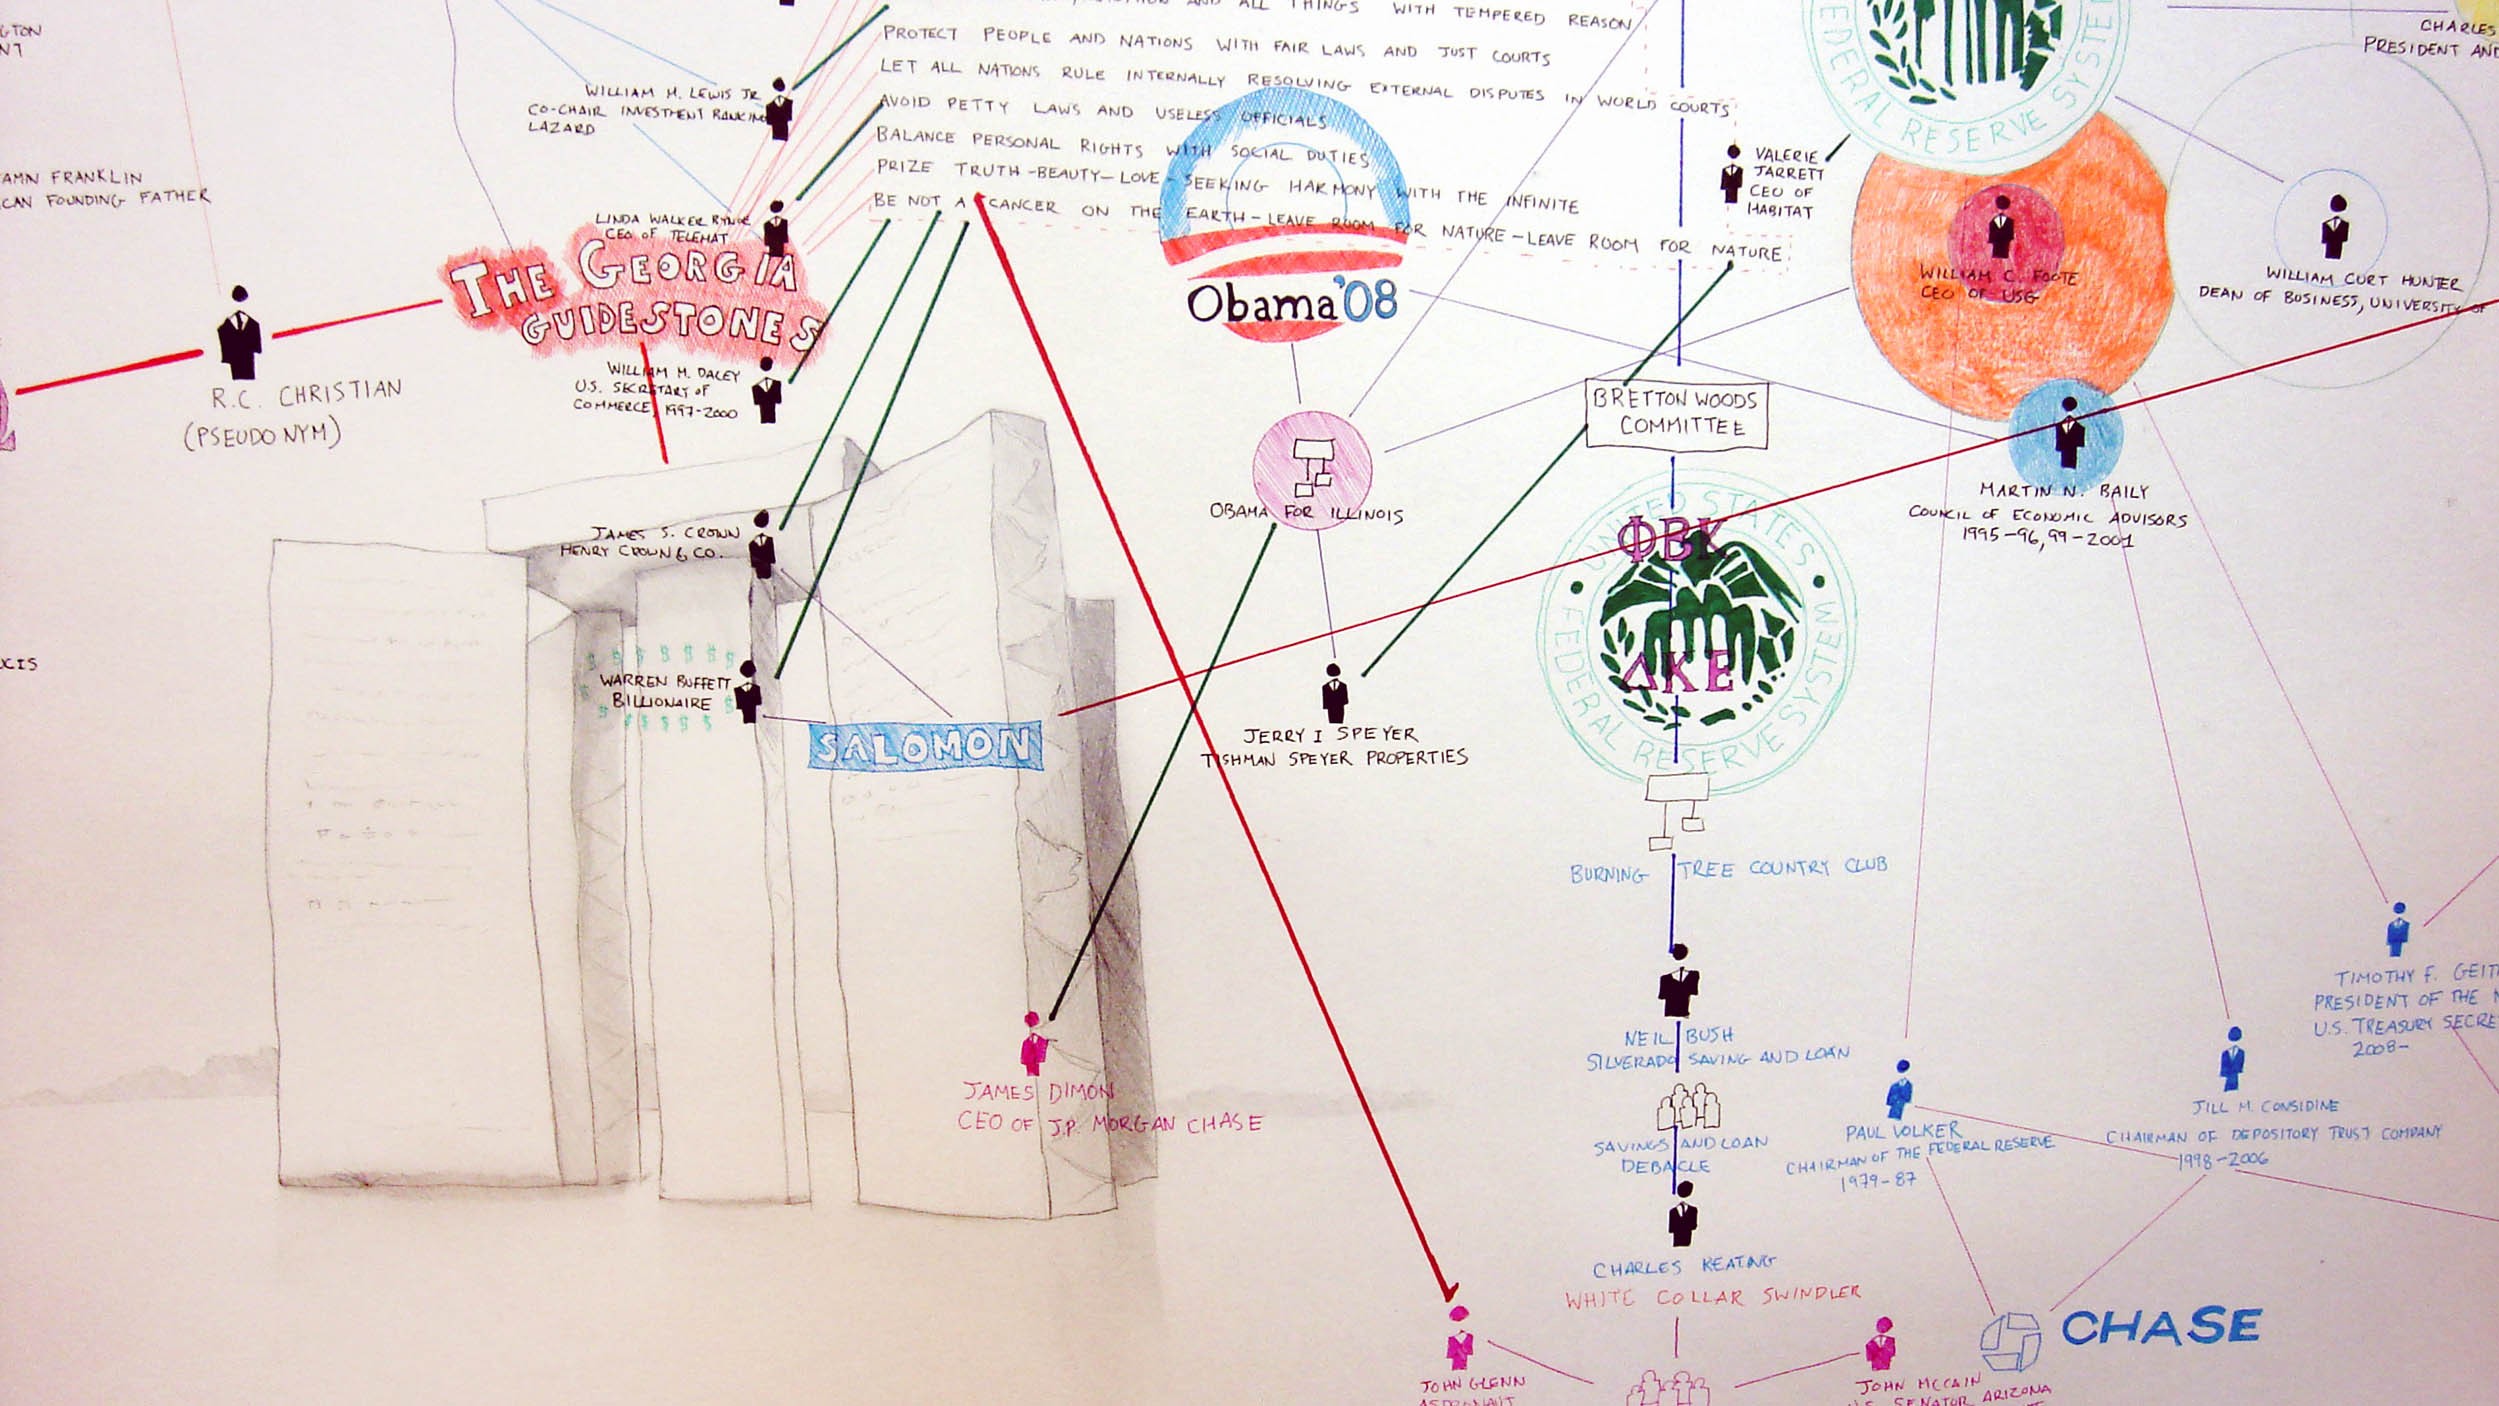 GTON
NT
AND ALL THINGS WITH TEMPERED REASON
PROTECT PEOPLE AND NATIONS WITH FAIR LAWS AND JUST COURTS
LET ALL NATIONS RULE INTERNALLY RESOLVING EXTERNAL DISPUTES IN WORLD COURTS
AVOID PETTY LAWS AND USELESS OFFICIALS
BALANCE PERSONAL RIGHTS WITH SOCIAL DUTIES
PRIZE TRUTH-BEAUTY-LOVE-SEEKING HARMONY WITH THE INFINITE
BE NOT A CANCER ON THE EARTH-LEAVE ROOM FOR NATURE-LEAVE ROOM FOR NATURE
WILLIAM M. LEWIS JR
CO-CHAIR INVESTMENT BANKING
LAZARD
AMN FRANKLIN
CAN FOUNDING FATHER
LINDA WALKER
CEO OF TELEMAT
THE GEORGIA
GUIDESTONES
R.C. CHRISTIAN
(PSEUDONYM)
WILLIAM M. DALEY
U.S. SECRETARY OF
COMMERCE, 1997-2000
JAMES S. CROWN
HENRY CROWN & CO.
CIS
$ $ $ $ $ $ $
WARREN BUFFETT
BILLIONAIRE
$ $ $ $ $ $
SALOMON
JAMES DIMON
CEO OF J.P. MORGAN CHASE
Obama'08
OBAMA FOR ILLINOIS
JERRY I SPEYER
TISHMAN SPEYER PROPERTIES
VALERIE
JARRETT
CEO OF
HABITAT
FEDERAL RESERVE SYSTEM
CHARLES
PRESIDENT AND
WILLIAM C. FOOTE
CEO OF USG
WILLIAM CURT HUNTER
DEAN OF BUSINESS, UNIVERSITY OF
BRETTON WOODS
COMMITTEE
MARTIN N. BAILY
COUNCIL OF ECONOMIC ADVISORS
1995-96, 99-2001
UNITED STATES
FEDERAL RESERVE SYSTEM
ΦBK
ΔKE
BURNING TREE COUNTRY CLUB
NEIL BUSH
SILVERADO SAVING AND LOAN
SAVINGS AND LOAN
DEBACLE
CHARLES KEATING
WHITE COLLAR SWINDLER
PAUL VOLKER
CHAIRMAN OF THE FEDERAL RESERVE
1979-87
JILL M. CONSIDINE
CHAIRMAN OF DEPOSITORY TRUST COMPANY
1998-2006
TIMOTHY F. GEIT
PRESIDENT OF THE N
U.S. TREASURY SECRE
2008-
CHASE
JOHN GLENN
ASTRONAUT
JOHN MCCAIN
U.S. SENATOR ARIZONA